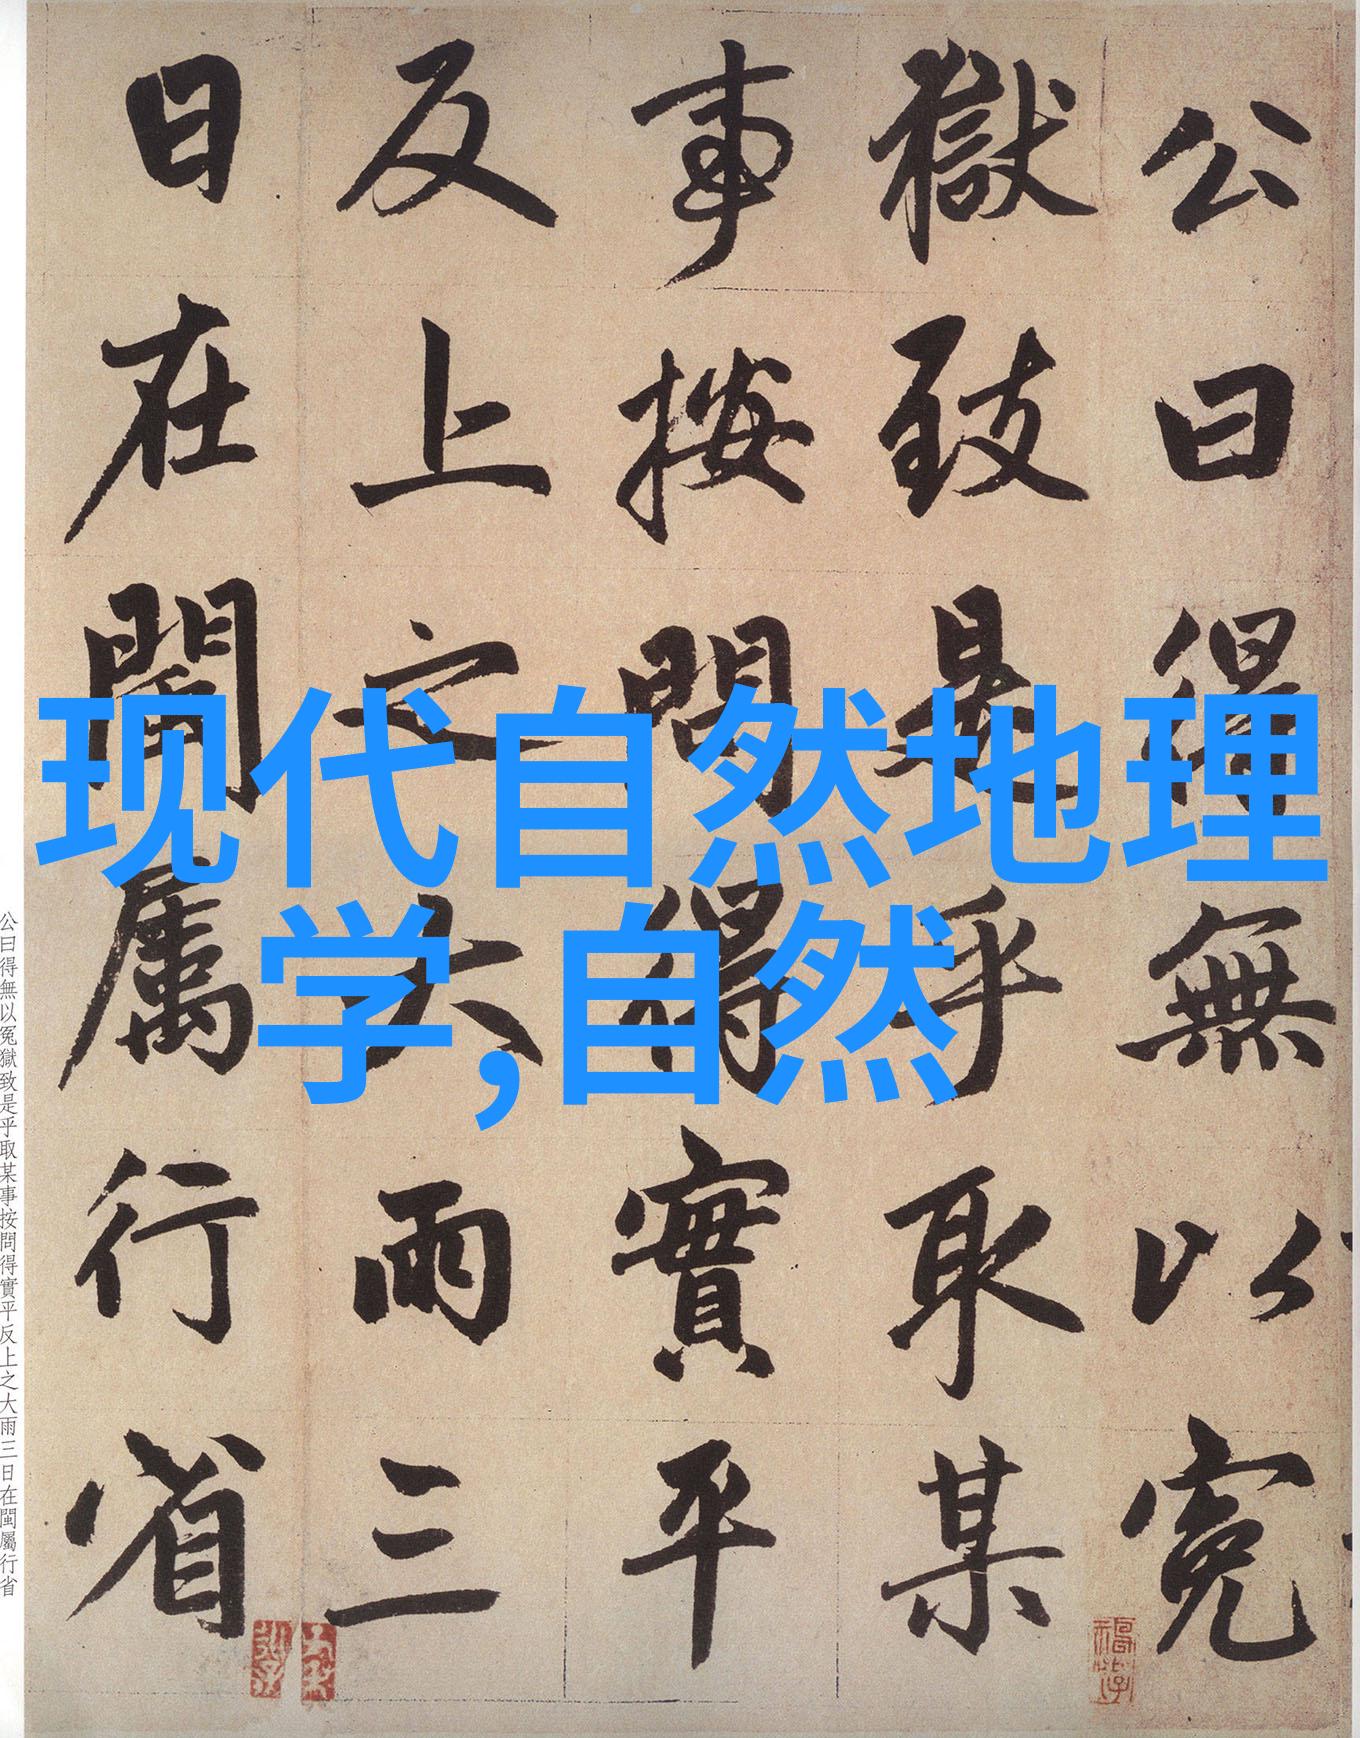 公曰得無以冤
獄致是乎取某
事按問得實平
反上之大雨三
日在閩屬行省
现代自然地理
学,自然
公曰得無以冤獄致是乎取某事按問得實平反上之大雨三日在閩屬行省